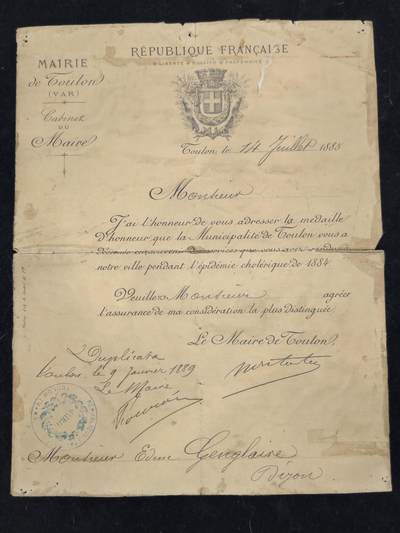 RÉPUBLIQUE FRANÇAISE
LIBERTÉ ÉGALITÉ FRATERNITÉ
MAIRIE
de Toulon
(VAR)
Cabinet
DU
Maire
Toulon, le 14 Juillet 1885
Monsieur
J'ai l'honneur de vous adresser la médaille
d'honneur que la Municipalité de Toulon vous a
décernée services que vous avez rendus
notre ville pendant l'épidémie cholérique de 1884
Veuillez Monsieur agréer
l'assurance de ma considération la plus distinguée
Le Maire de Toulon,
Duplicata
Toulon le 9 Janvier 1889
Le Maire
Monsieur Edme Genglaire
Dijon